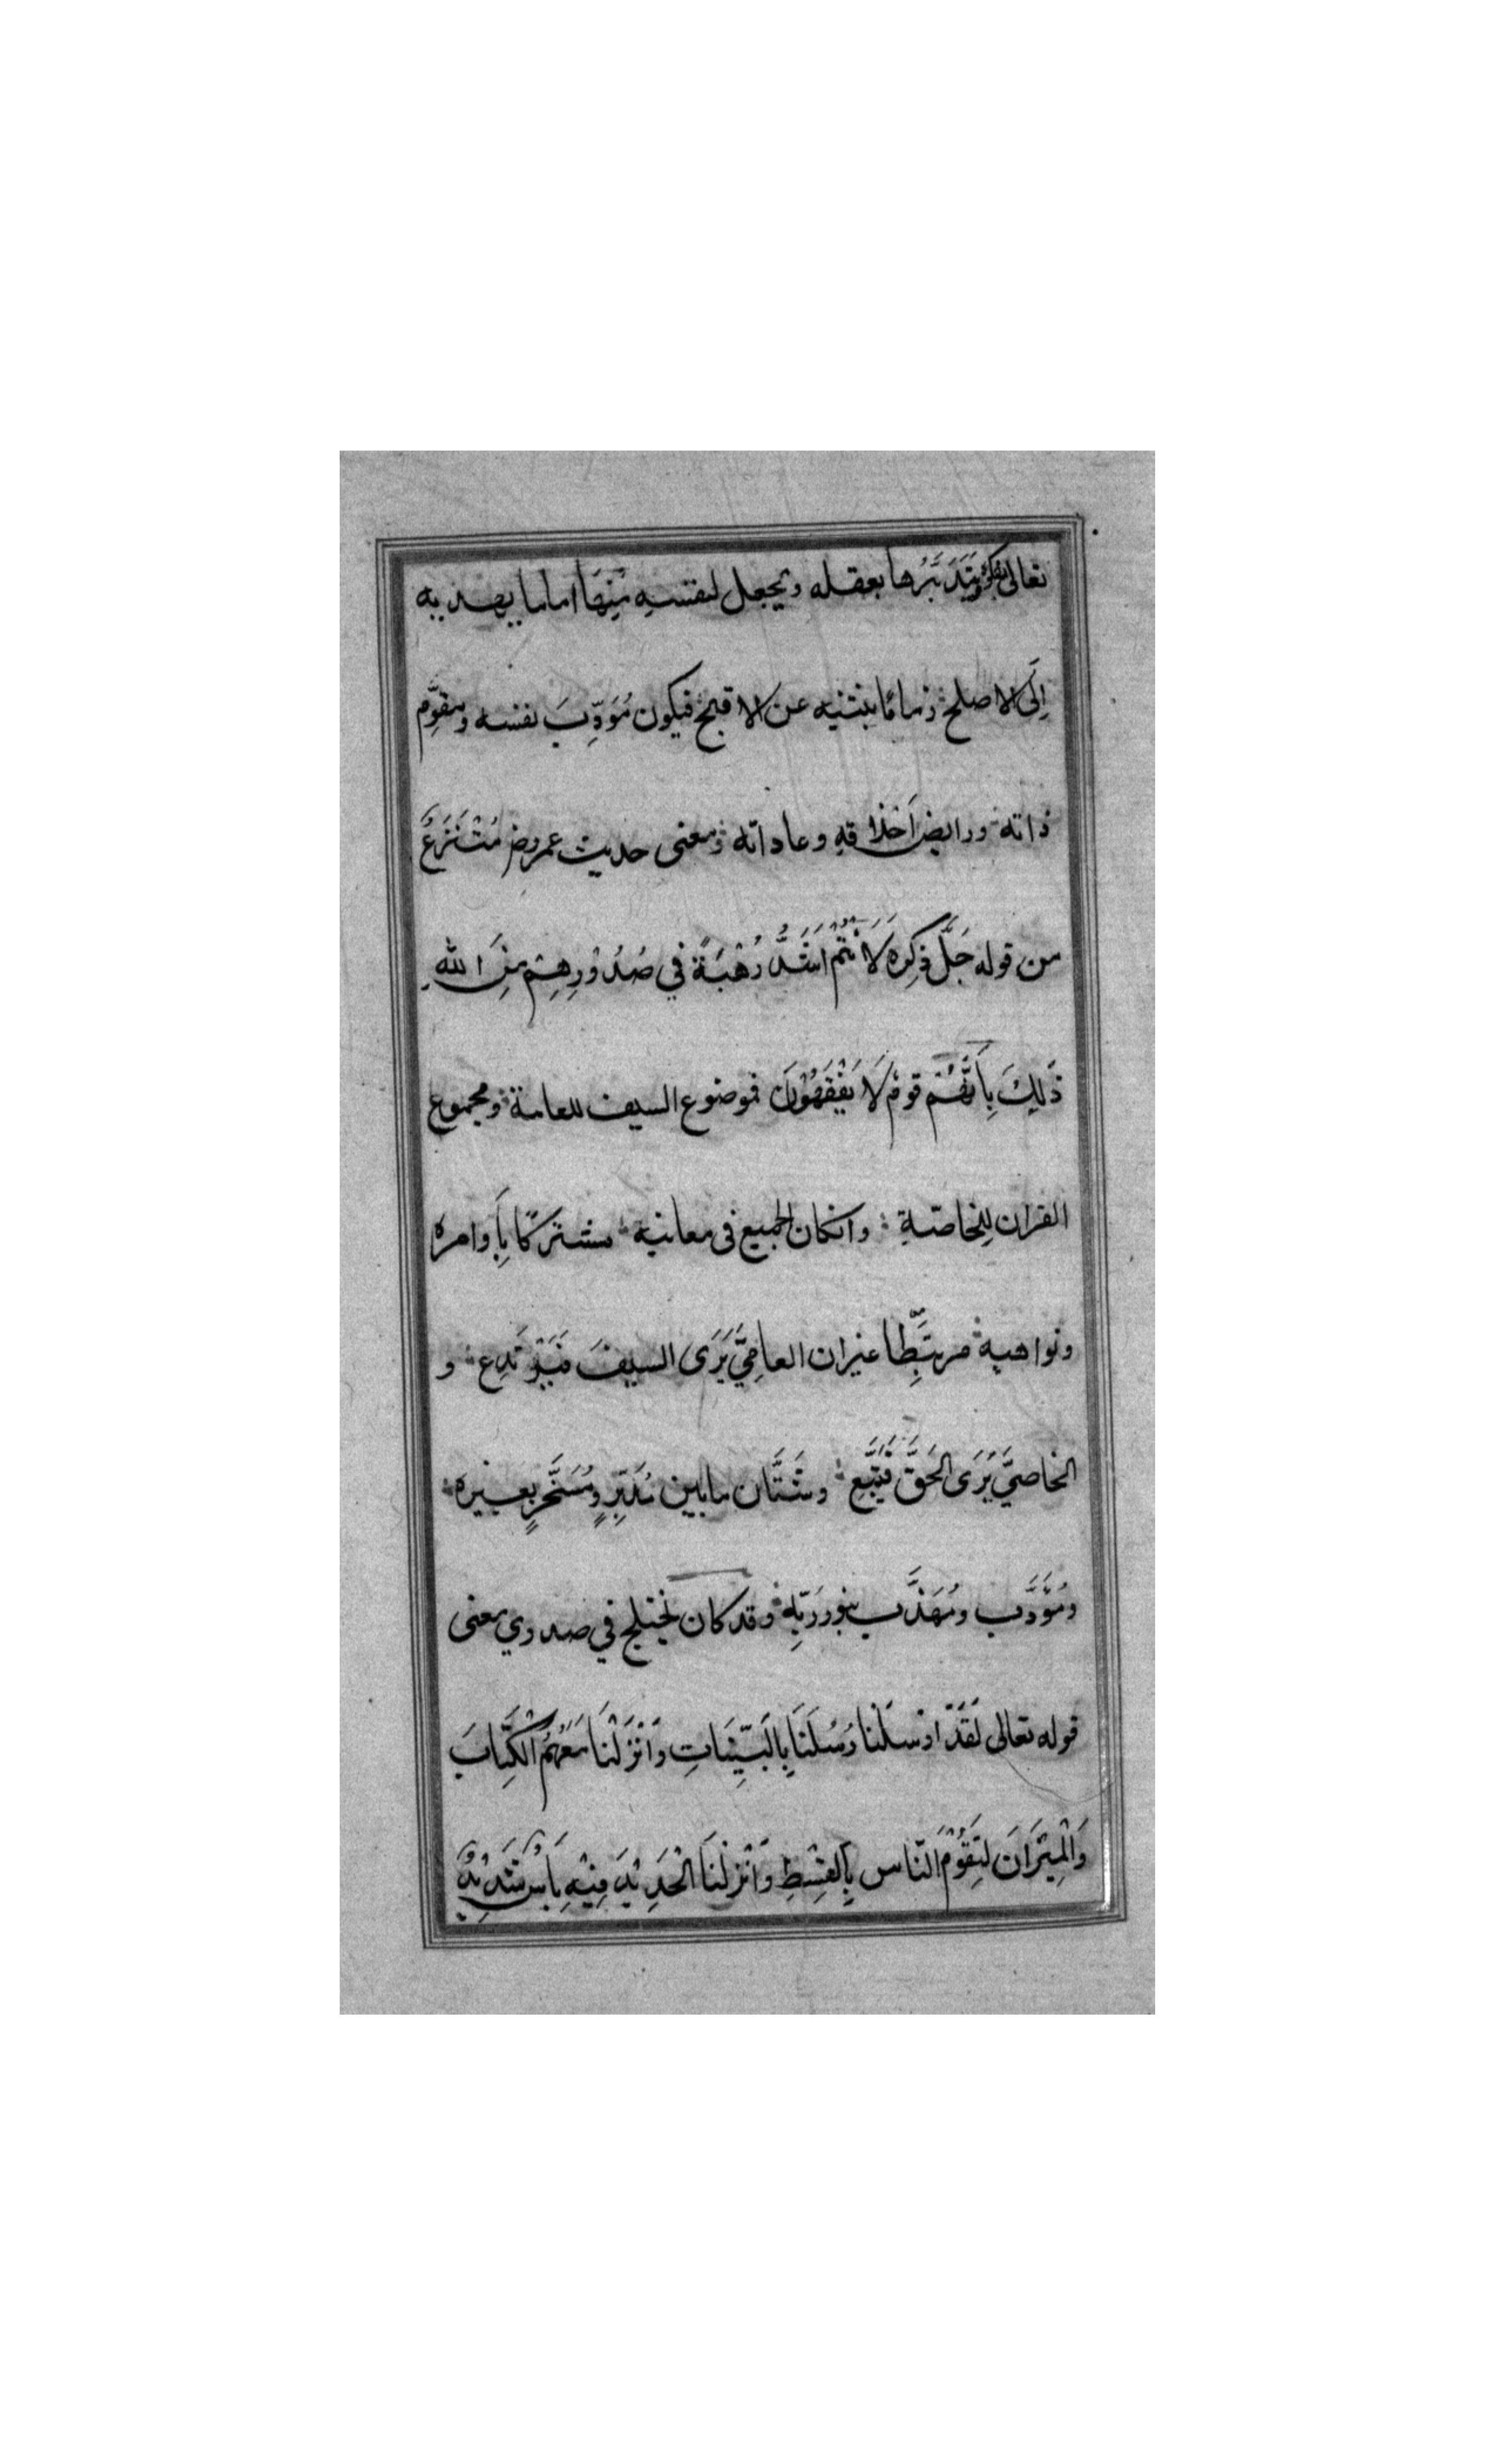 تعالى بفكره ويَتَدَبَّرُها بعقله ويجعل لنفسهِ مِنهَا اماما يهديه
اِلَى الاصلح ۰ زمامًا يثنيه عن الاقبح فيكون مُؤدِّبَ نفسه ومقوِّم
ذاته ۰ ورايض اَخلاقهِ وعاداته ۰ ومعنى حديث عمر رض مُنْتَزَعٌ
من قوله جَلَّ ذِكره لَاَنْتُمْ اَشَدُّ رَهْبَةً في صُدُوْرِهِمْ مِنَ اللهِ
ذَلِكَ بِاَنَّهُمْ قومٌ لَا يَفْقَهُوْنَ فموضوع السيف للعامة ۰ ومجموع
القران لِلخاصّةِ ۰ وانكان الجميع فى معانيه ۰ مشتركًا بِاَوامره
ونواهيه ۰ مرتبِطا غيران العامِيَّ يَرَى السيفَ فَيَرْتَدِع ۰ و
الخاصيَّ يَرَى الحَقَّ فَيَتَّبِع ۰ وشَتَّان مابين مُدَبِّرٍ ومُسَخَّرٍ بغيره ۰
ومُؤَدَّب ومُهَذَّب بنور رَبِّهِ ۰ وقد كان يختلج في صدري معنى
قوله تعالى لَقَدْ ارْسَلْنا رُسُلَنَا بِالبَيِّنَاتِ وَاَنْزَلْنَا مَعَهُمُ الْكِتَابَ
وَالْمِيْزَانَ لِيَقُوْمَ النّاس بِالقِسْطِ وَاَنْزلْنَا الْحَدِيْدَ فِيْهِ بَأْسٌ شَدِيْدٌ